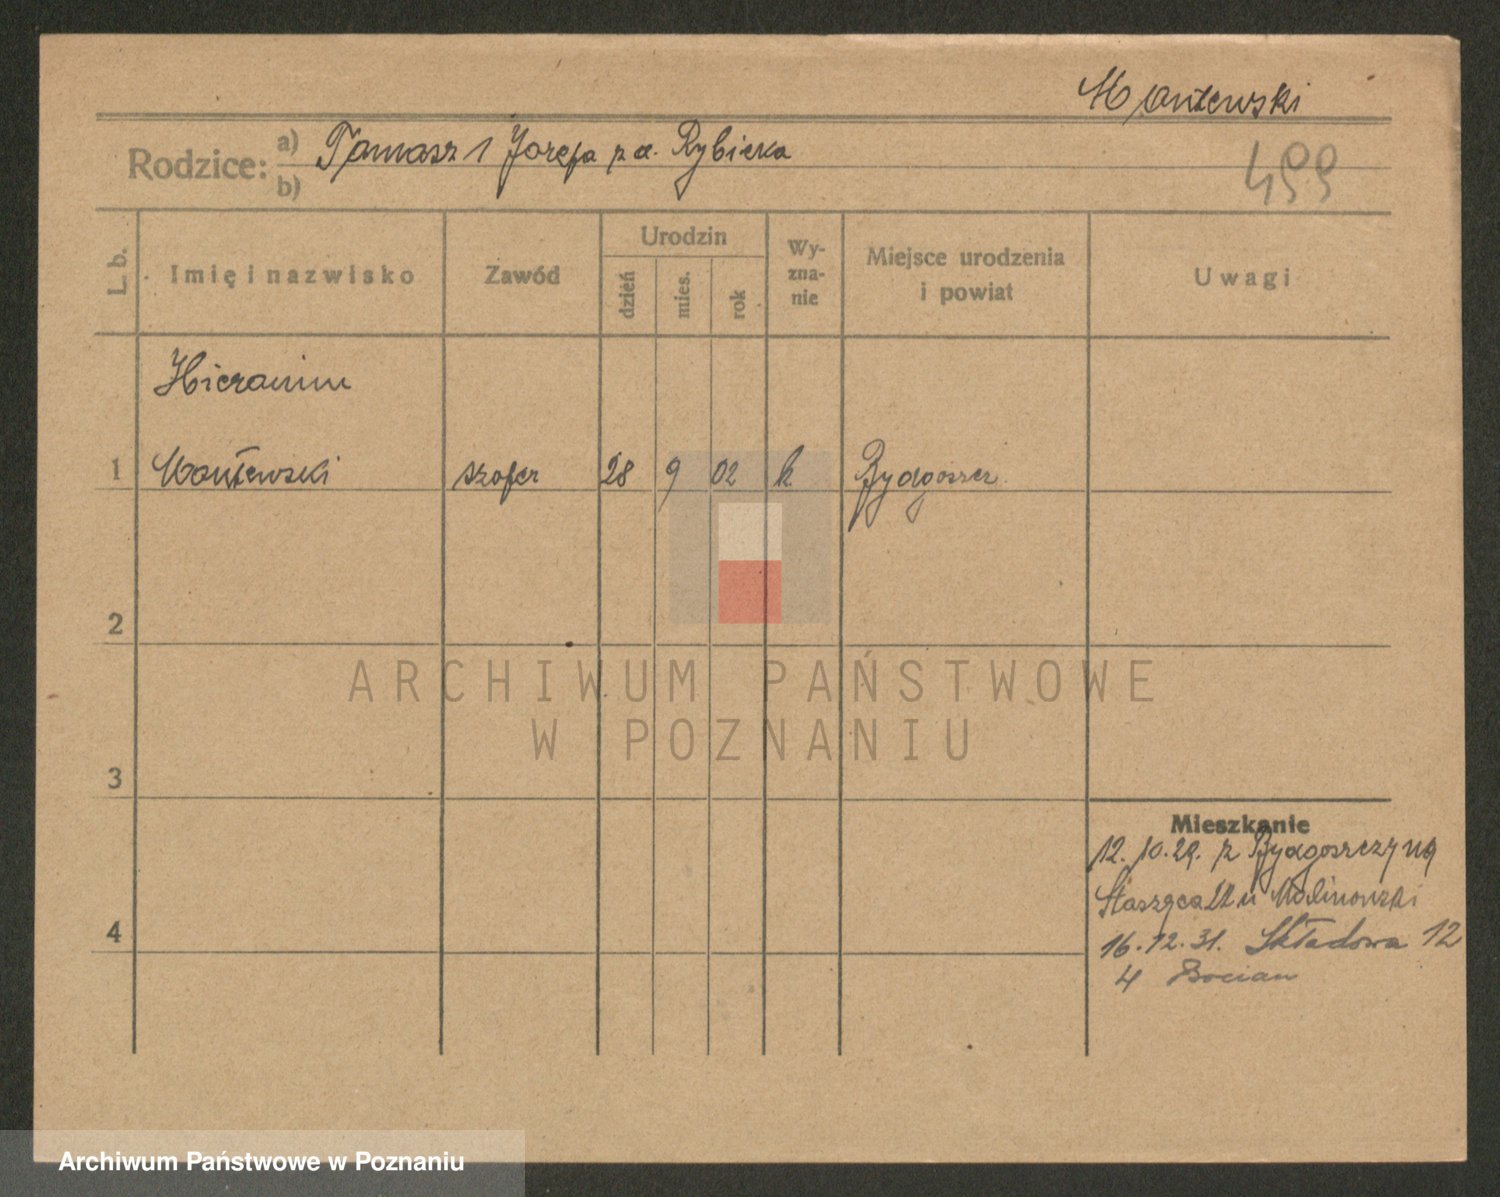 Mantewski
Rodzice: a) Tomasz i Józefa p. d. Rybicka
b)
499
L. b.
Imię i nazwisko
Zawód
Urodzin
dzień
mies.
rok
Wy-
zna-
nie
Miejsce urodzenia
i powiat
Uwagi
Hieronim
1 Mantewski szofer 28 9 02 k Bydgoszcz
2
ARCHIWUM PAŃSTWOWE
W POZNANIU
3
Mieszkanie
12. 10. 29. z Bydgoszczy na
Staszyca u Malinowski
4
16. 12. 31. Składowa 12
4 Bocian
Archiwum Państwowe w Poznaniu